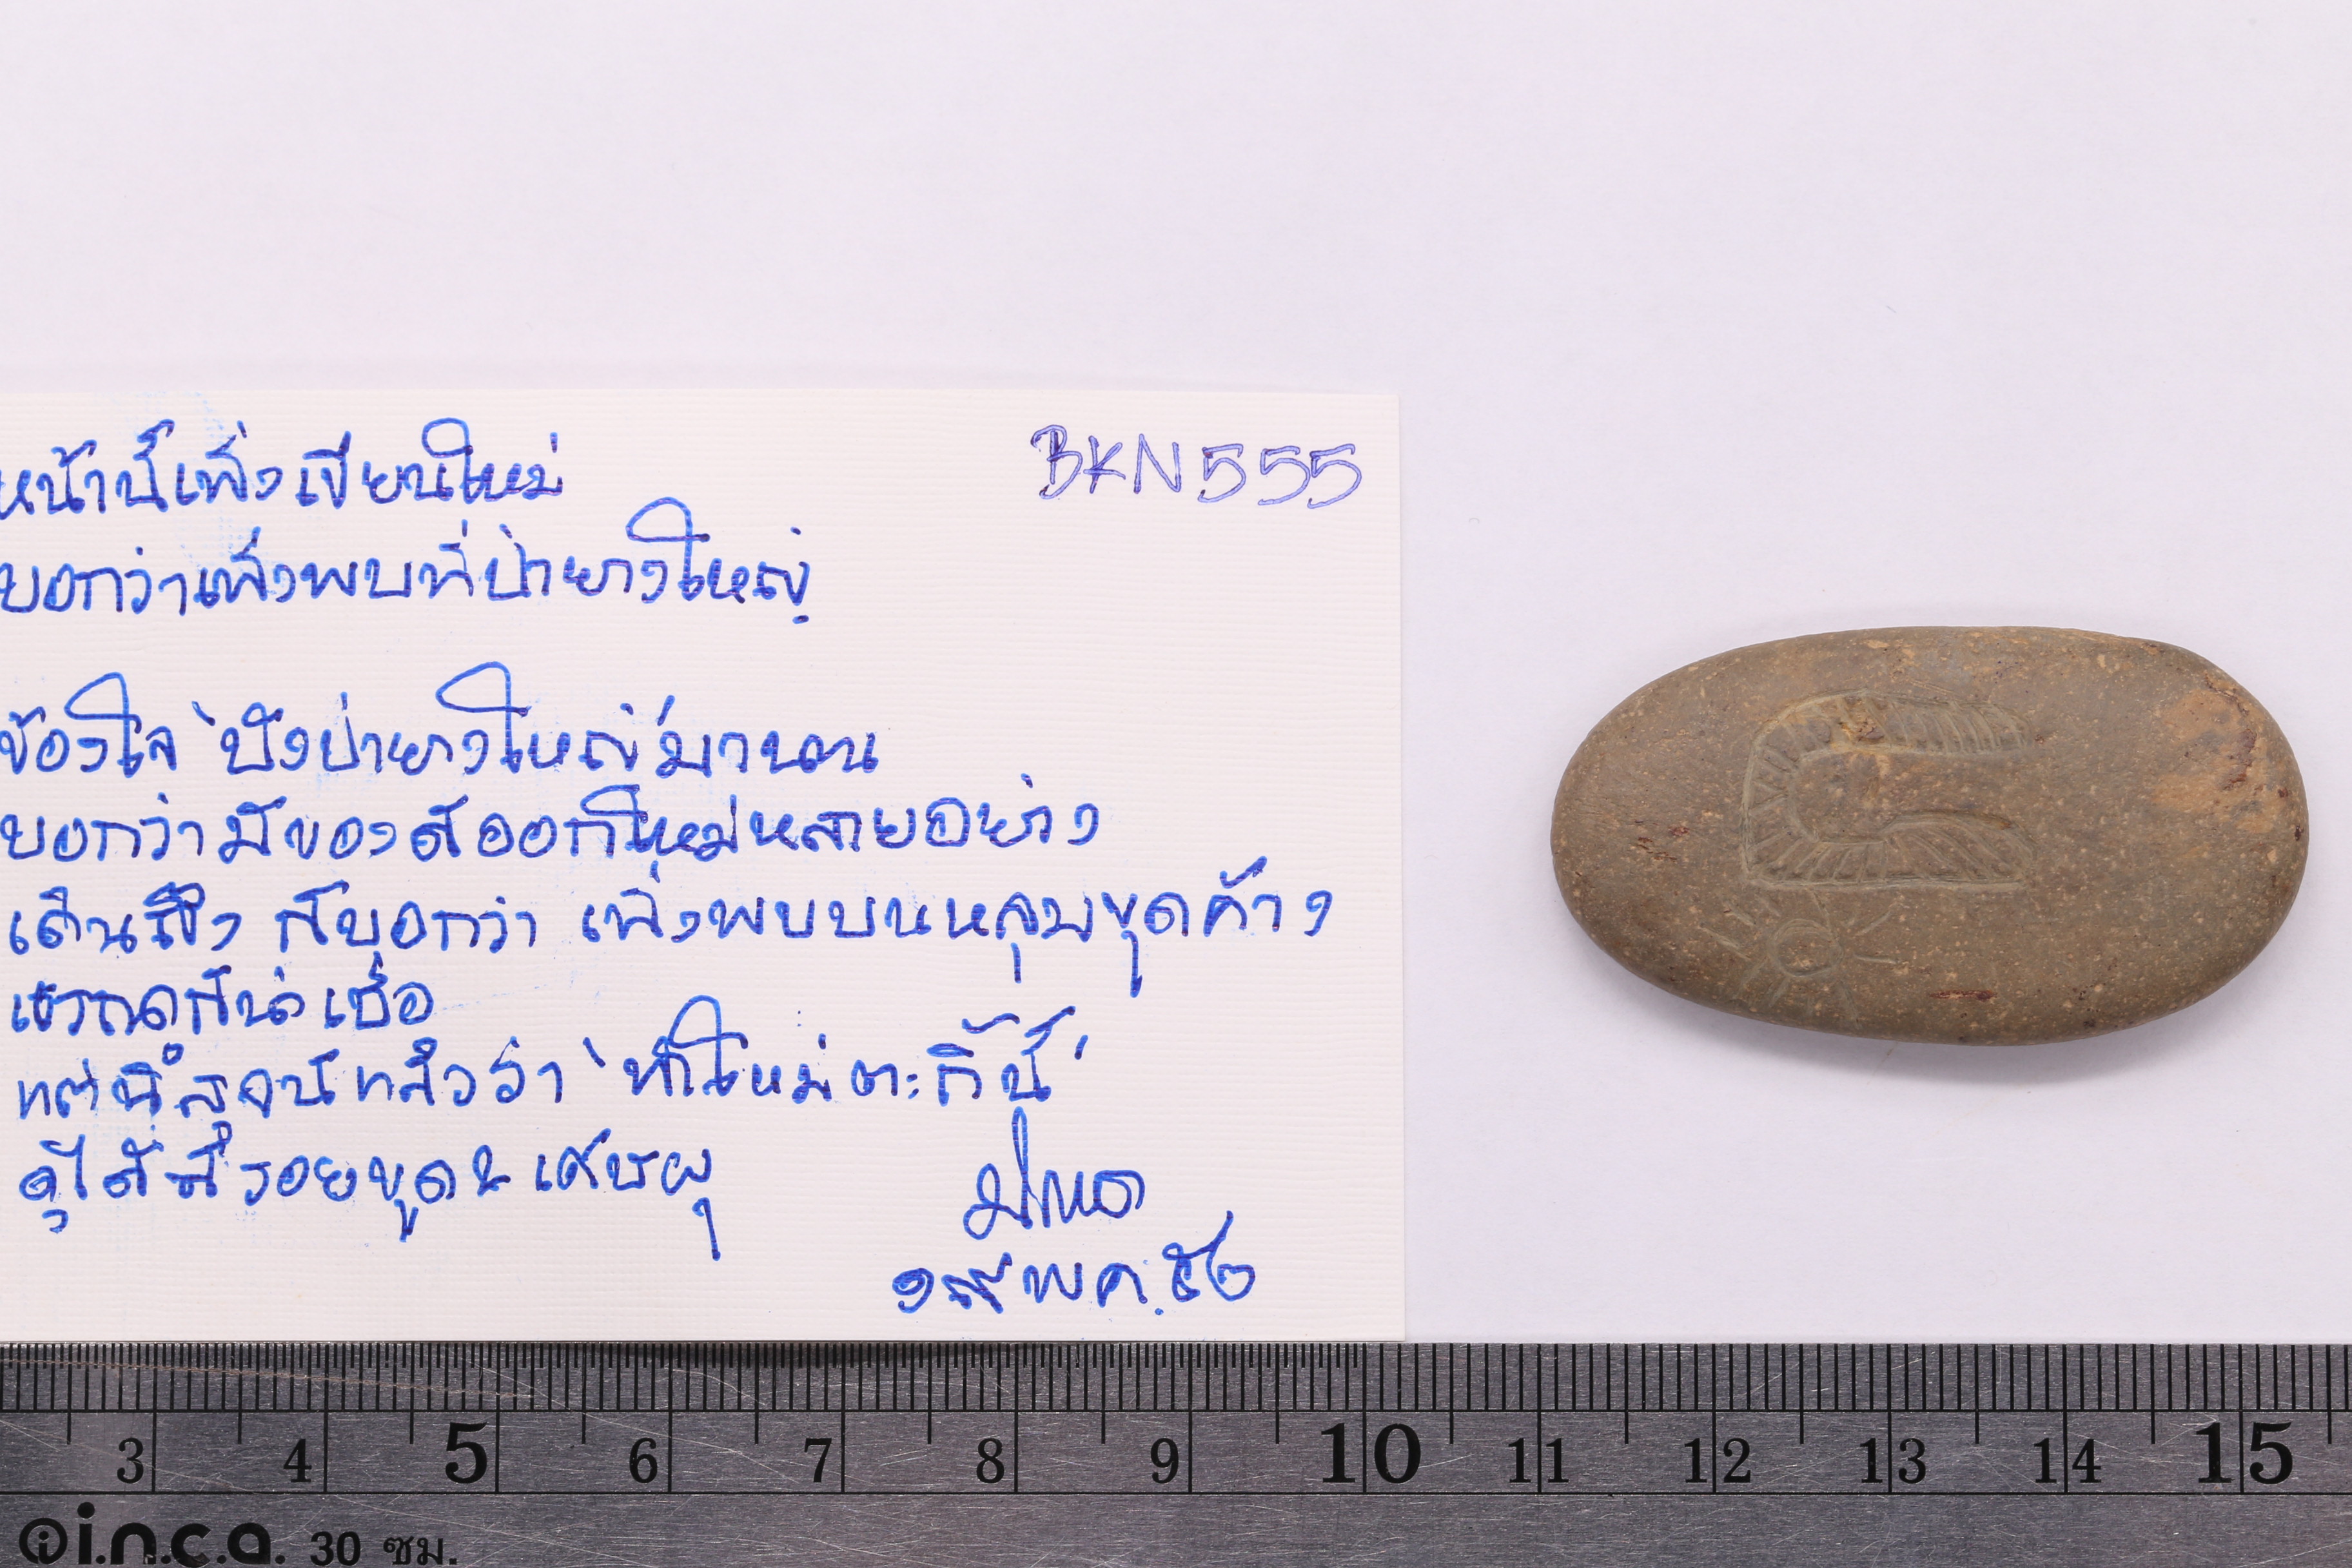 BKN555
หน้านี้เพิ่งเขียนใหม่
บอกว่าเพิ่งพบที่ป่ายางใหญ่
ข้องใจ 'บึงป่ายางใหญ่' มานาน
บอกว่ามีของดีออกใหม่หลายอย่าง
เดินถึง ก็บอกว่า เพิ่งพบบนหลุมขุดค้าง
เราดูก็น่าเชื่อ
แต่พิสูจน์แล้วว่า 'ทำใหม่ตะกี้นี้'
ดูได้ที่รอยขูดน เศษผุ
๑๙ พค. ๕๒
3 4 5 6 7 8 9 10 11 12 13 14 15
i.n.c.a. 30 ซม.